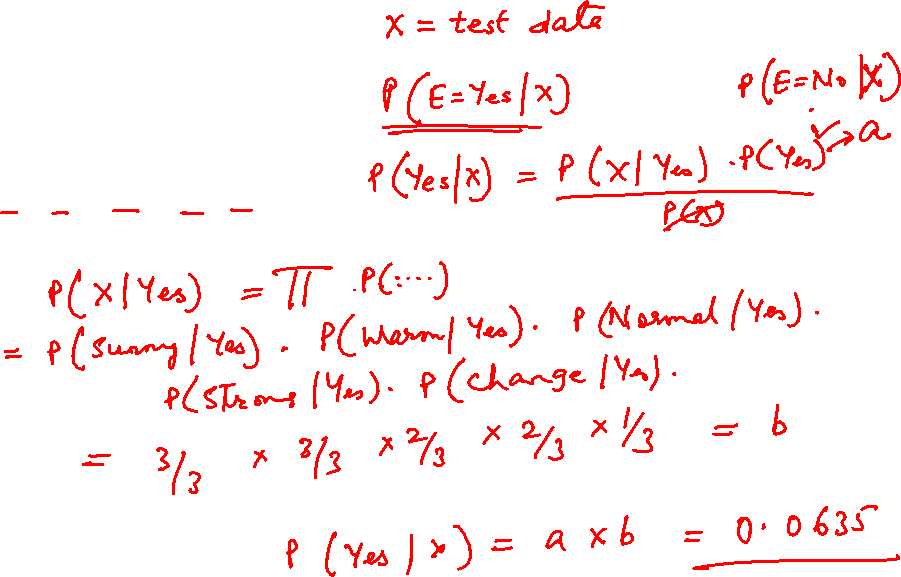 X = test data
P(E=Yes/X) P(E=No/X)
P(Yes/X) = P(X/Yes) . P(Yes) → a
P(X)
P(X/Yes) = Π . P(....)
= P(Sunny/Yes) . P(Warm/Yes) . P(Normal/Yes) .
P(Strong/Yes) . P(change/Yes) .
= 3/3 x 3/3 x 2/3 x 2/3 x 1/3 = b
P(Yes/x) = a x b = 0.0635